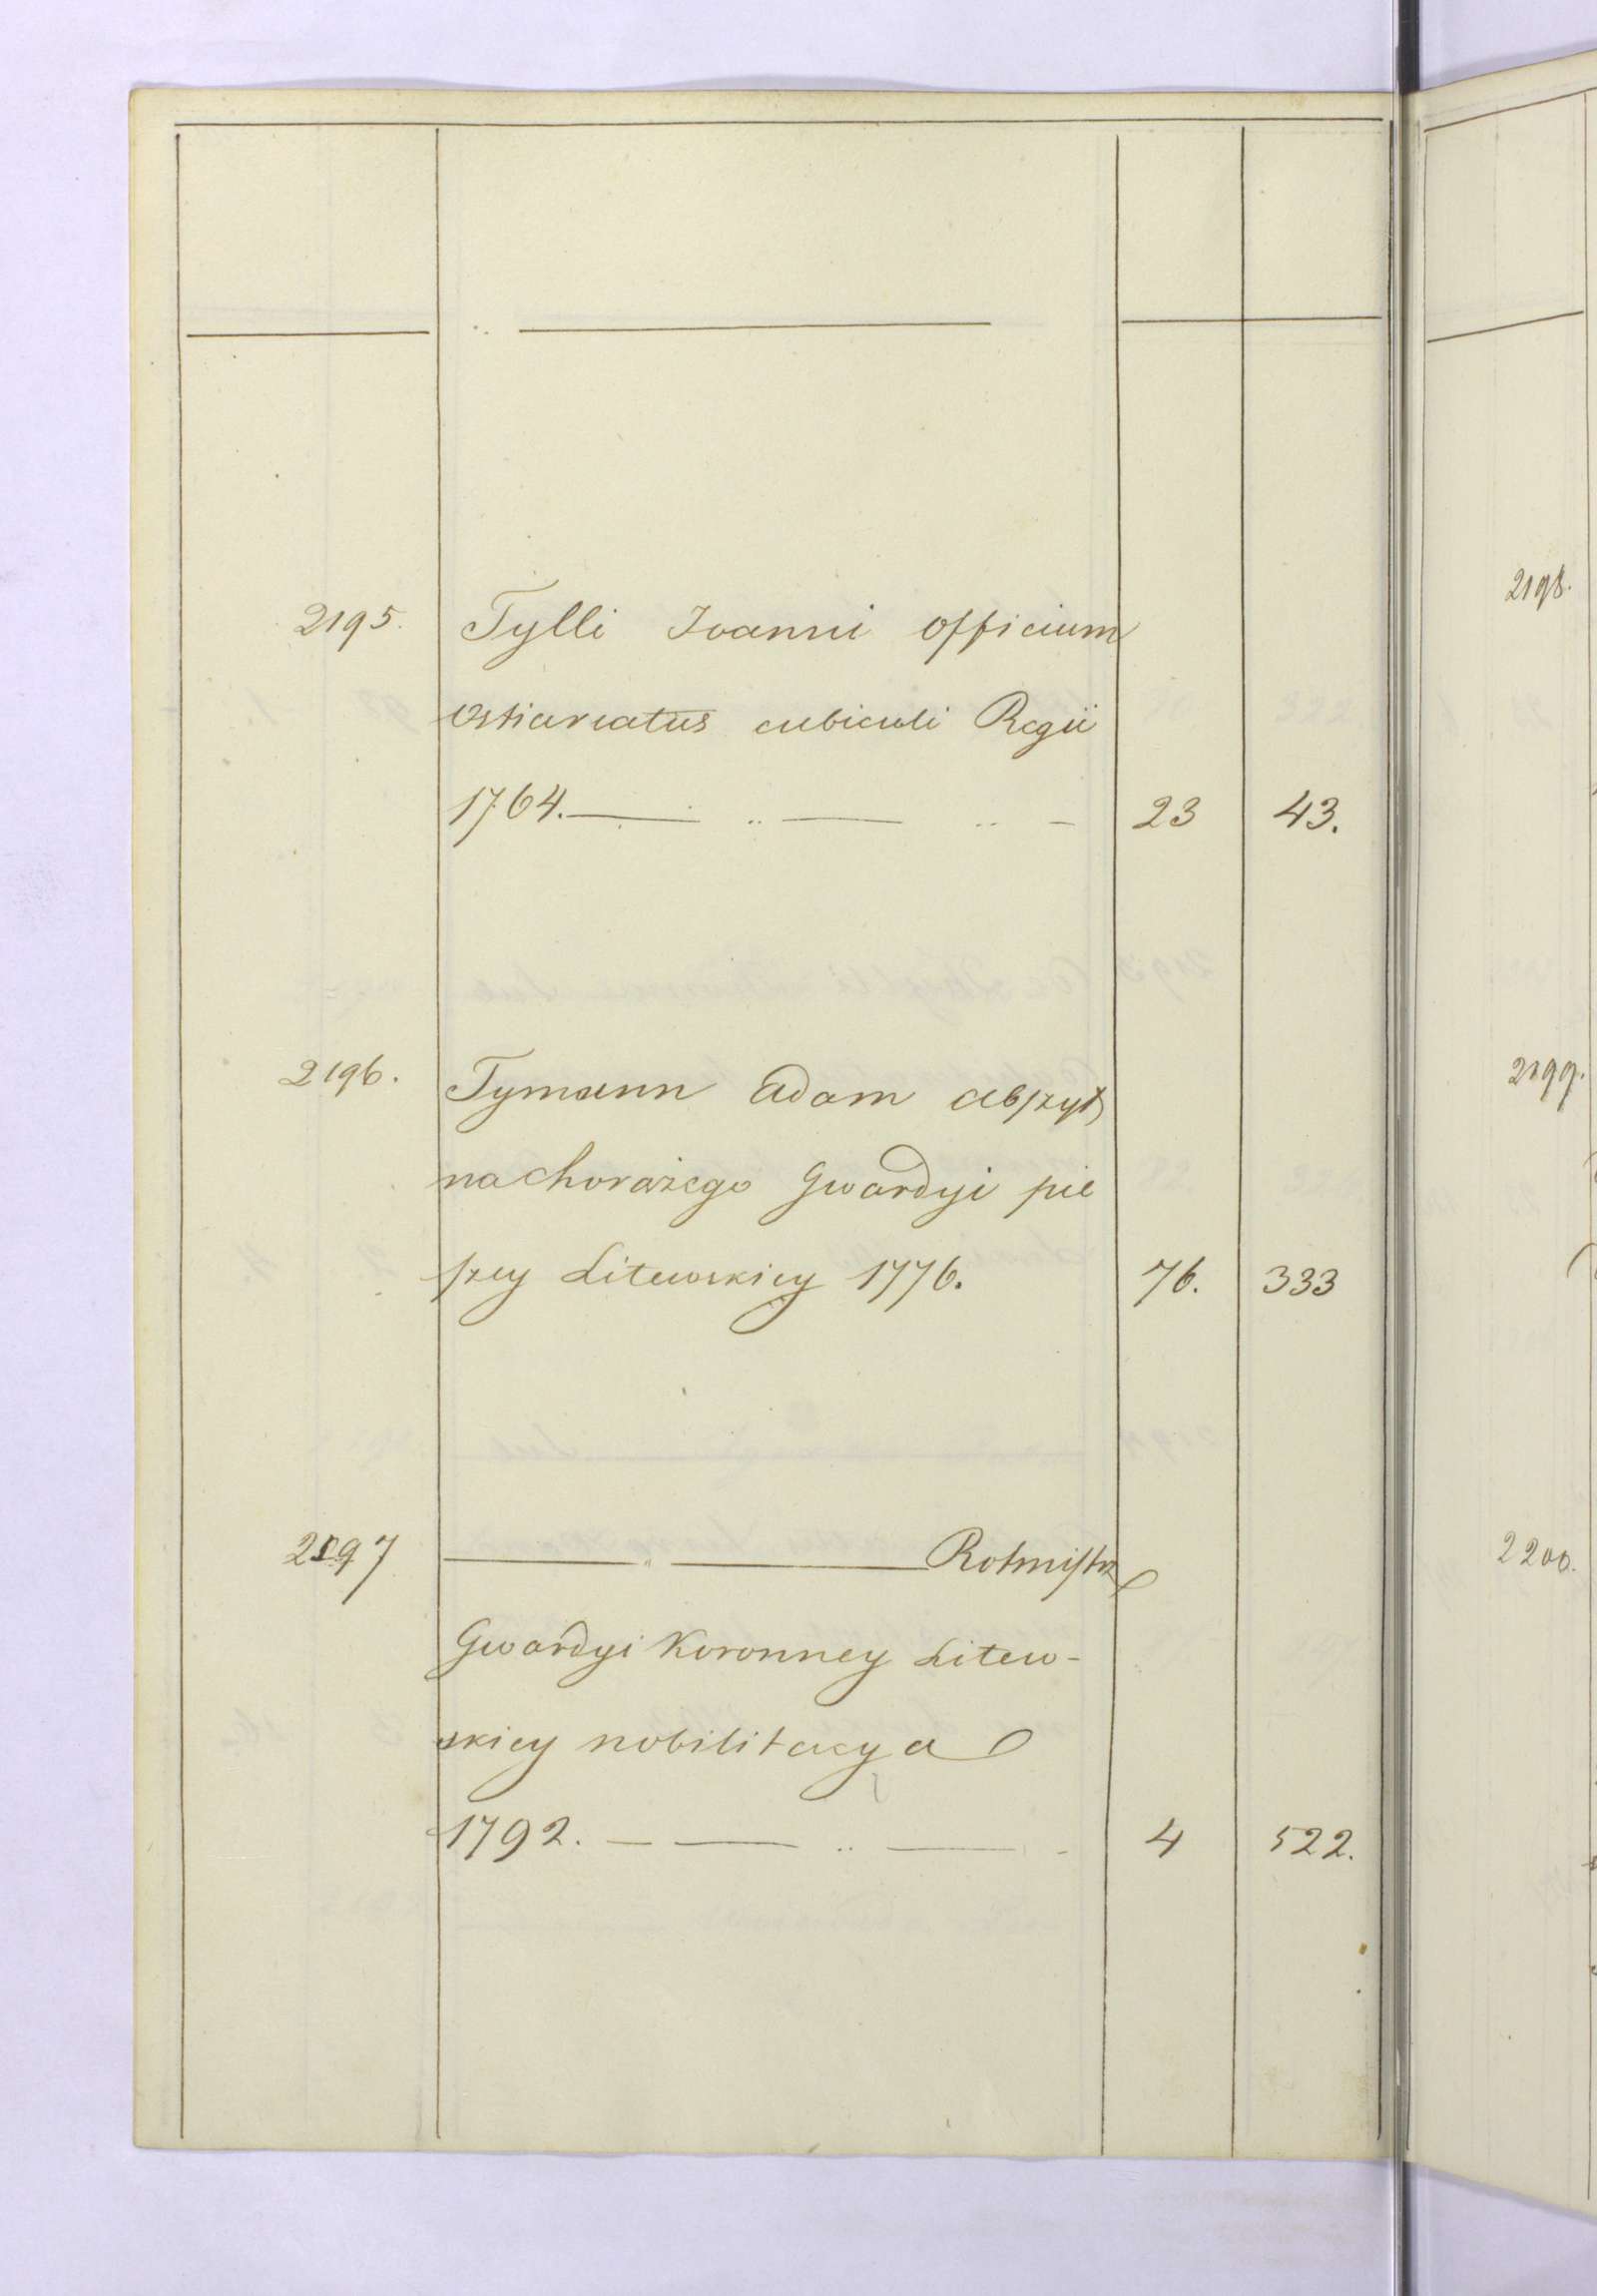 2195. Tylli Joanni officium
Ostiariatus cubiculi Regii
1764. — .. — .. - 23 43.
2196. Tymann Adam abszyt
na chorażego Gwardyi pie
szey Litewskiey 1776. 76. 333
2197 — " — Rotmistrz
Gwardyi Koronney Litew-
skiey nobilitacya
1792. — — .. — - 4 522.
2198.
2199.
2200.